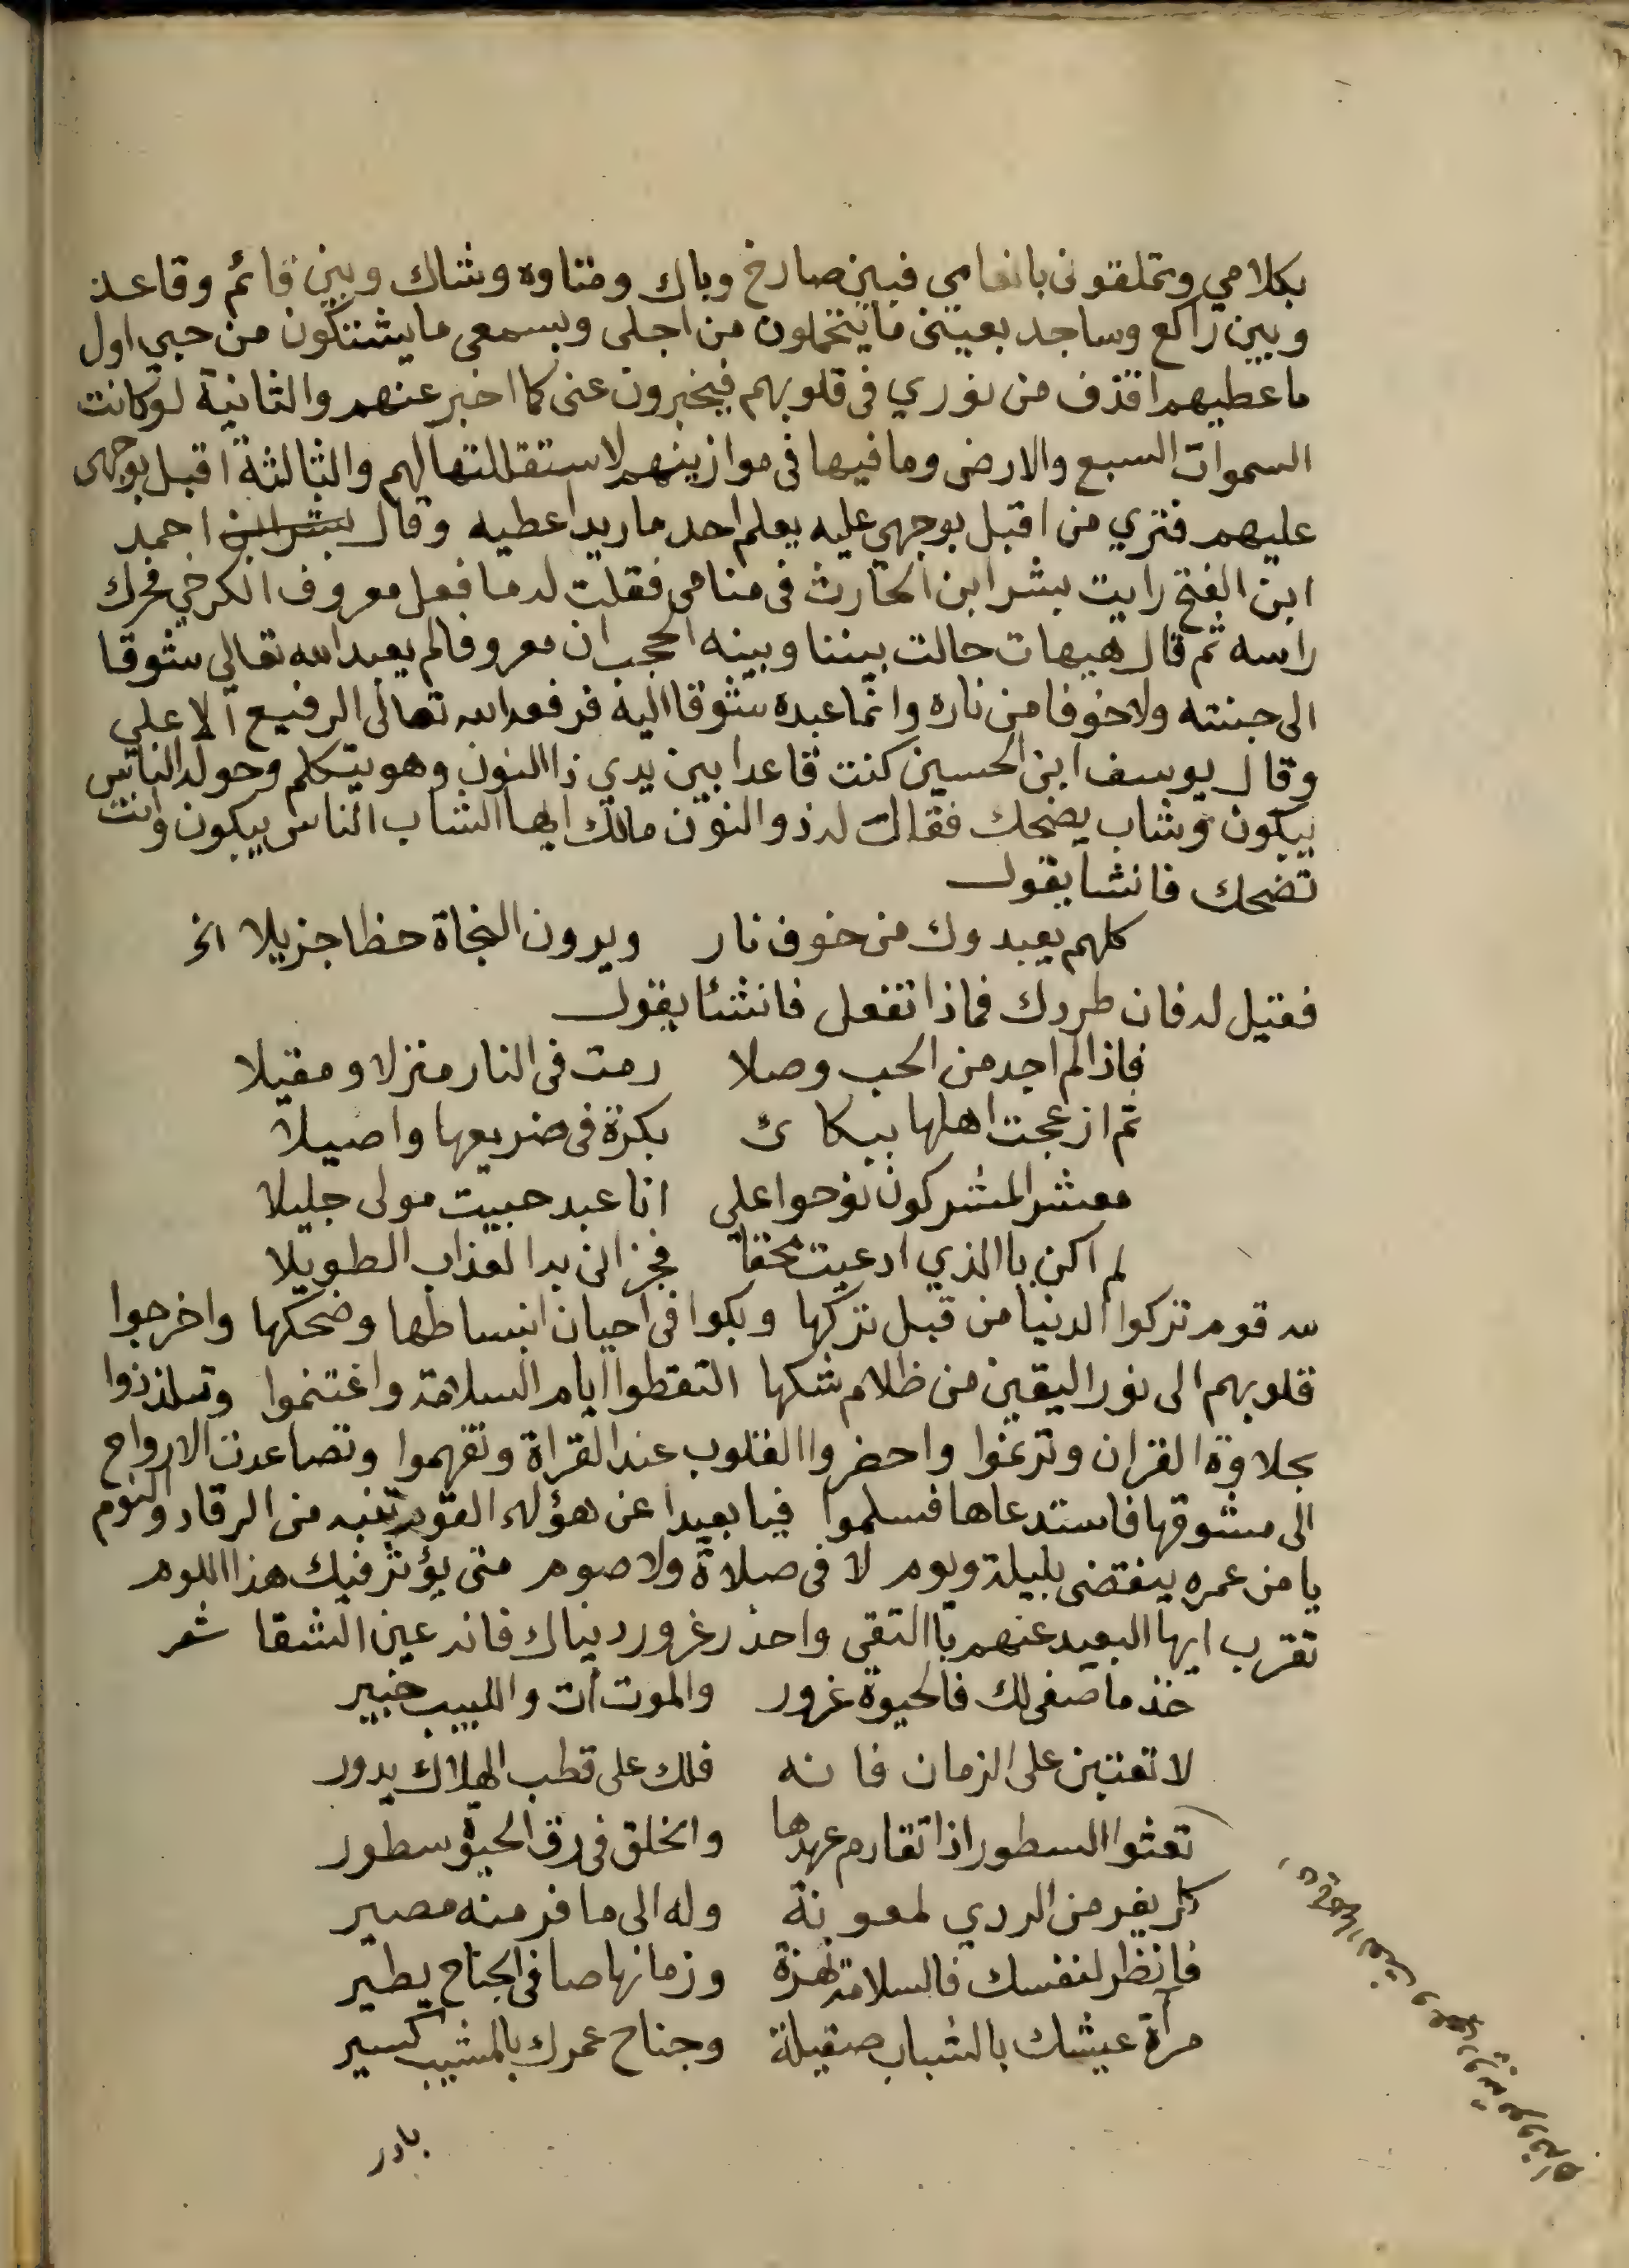 بكلامي ويتملقوني بانعامي فبين صارخ وباك ومتاوه وشاك وبين قائم وقاعد
وبين راكع وساجد بعيني ما يتحملون من اجلى وبسمعى ما يشتكون من حبي اول
ما عطيهم اقذف من نوري في قلوبهم فيخبرون عنى كما اخبر عنهم والثانية لو كانت
السموات السبع والارض وما فيها في موازينهم لاستقللتها لهم والثالثة اقبل بوجهى
عليهم فتري من اقبل بوجهي عليه يعلم احد ما اريد اعطيه وقال احمد
ابن الفتح رايت بشر ابن الحارث في منامى فقلت له ما فعل معروف الكرخي فحرك
راسه ثم قال هيهات حالت بيننا وبينه الحجب ان معروفا لم يعبد الله تعالى شوقا
الى جنته ولا خوفا من ناره وانما عبده شوقا اليه فرفعه الله تعالى الرفيع الاعلي
وقال يوسف ابن الحسين كنت قاعدا بين يدي ذا النون وهو يتكلم وحوله الناس
يبكون وشاب يضحك فقال له ذو النون مالك ايها الشاب الناس يبكون وانت
تضحك فانشا يقول
كلهم يعبدوك من خوف نار ويرون النجاة حظا جزيلا الخ
فقيل له فان طردك فماذا تفعل فانشئا يقول
فاذا لم اجد من الحب وصلا رمت في النار منزلا ومقيلا
ثم ازعجت اهلها ببكائ بكرة في ضريعها واصيلا
معشر المشركون نوحوا على انا عبد حبيت مولى جليلا
لم اكن باالذي ادعيت محقا فجزاني بدا العذاب الطويلا
لله قوم تركوا الدنيا من قبل تركها وبكوا في احيان انبساطها وضحكها واخرجوا
قلوبهم الى نور اليقين من ظلام شكها التقطوا ايام السلامة واغتنموا وتلذذوا
بحلاوة القران وترنموا واحضروا القلوب عند القراة وتفهموا وتصاعدت الارواح
الى مشوقها فاستدعاها فسلموا فيا بعيدا عن هؤلاء القوم تنبه من الرقاد والنوم
يا من عمره ينقضى بليلة ويوم لا في صلاة ولا صوم متى يؤثر فيك هذا اللوم
تقرب ايها البعيد عنهم باالتقى واحذر غرور دنياك فانه عين الشقا شعر
خذ ما صفى لك فالحيوة غرور والموت آت واللبيب خبير
لا تعتبن على الزمان فانه فلك على قطب الهلاك يدور
تعثوا السطور اذا تقادم عهدها والخلق في رق الحيوة سطور
كل يفر من الردي لمعونة وله الى ما فر منه مصير
فانظر لنفسك فالسلامة نهزة وزمانها صافى الجناح يطير
مرآة عيشك بالشباب صقيلة وجناح عمرك بالمشيب كسير
بادر